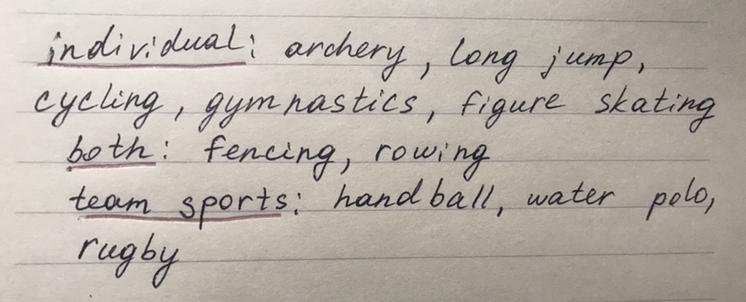 individual: archery, long jump,
cycling, gymnastics, figure skating
both: fencing, rowing
team sports: handball, water polo,
rugby